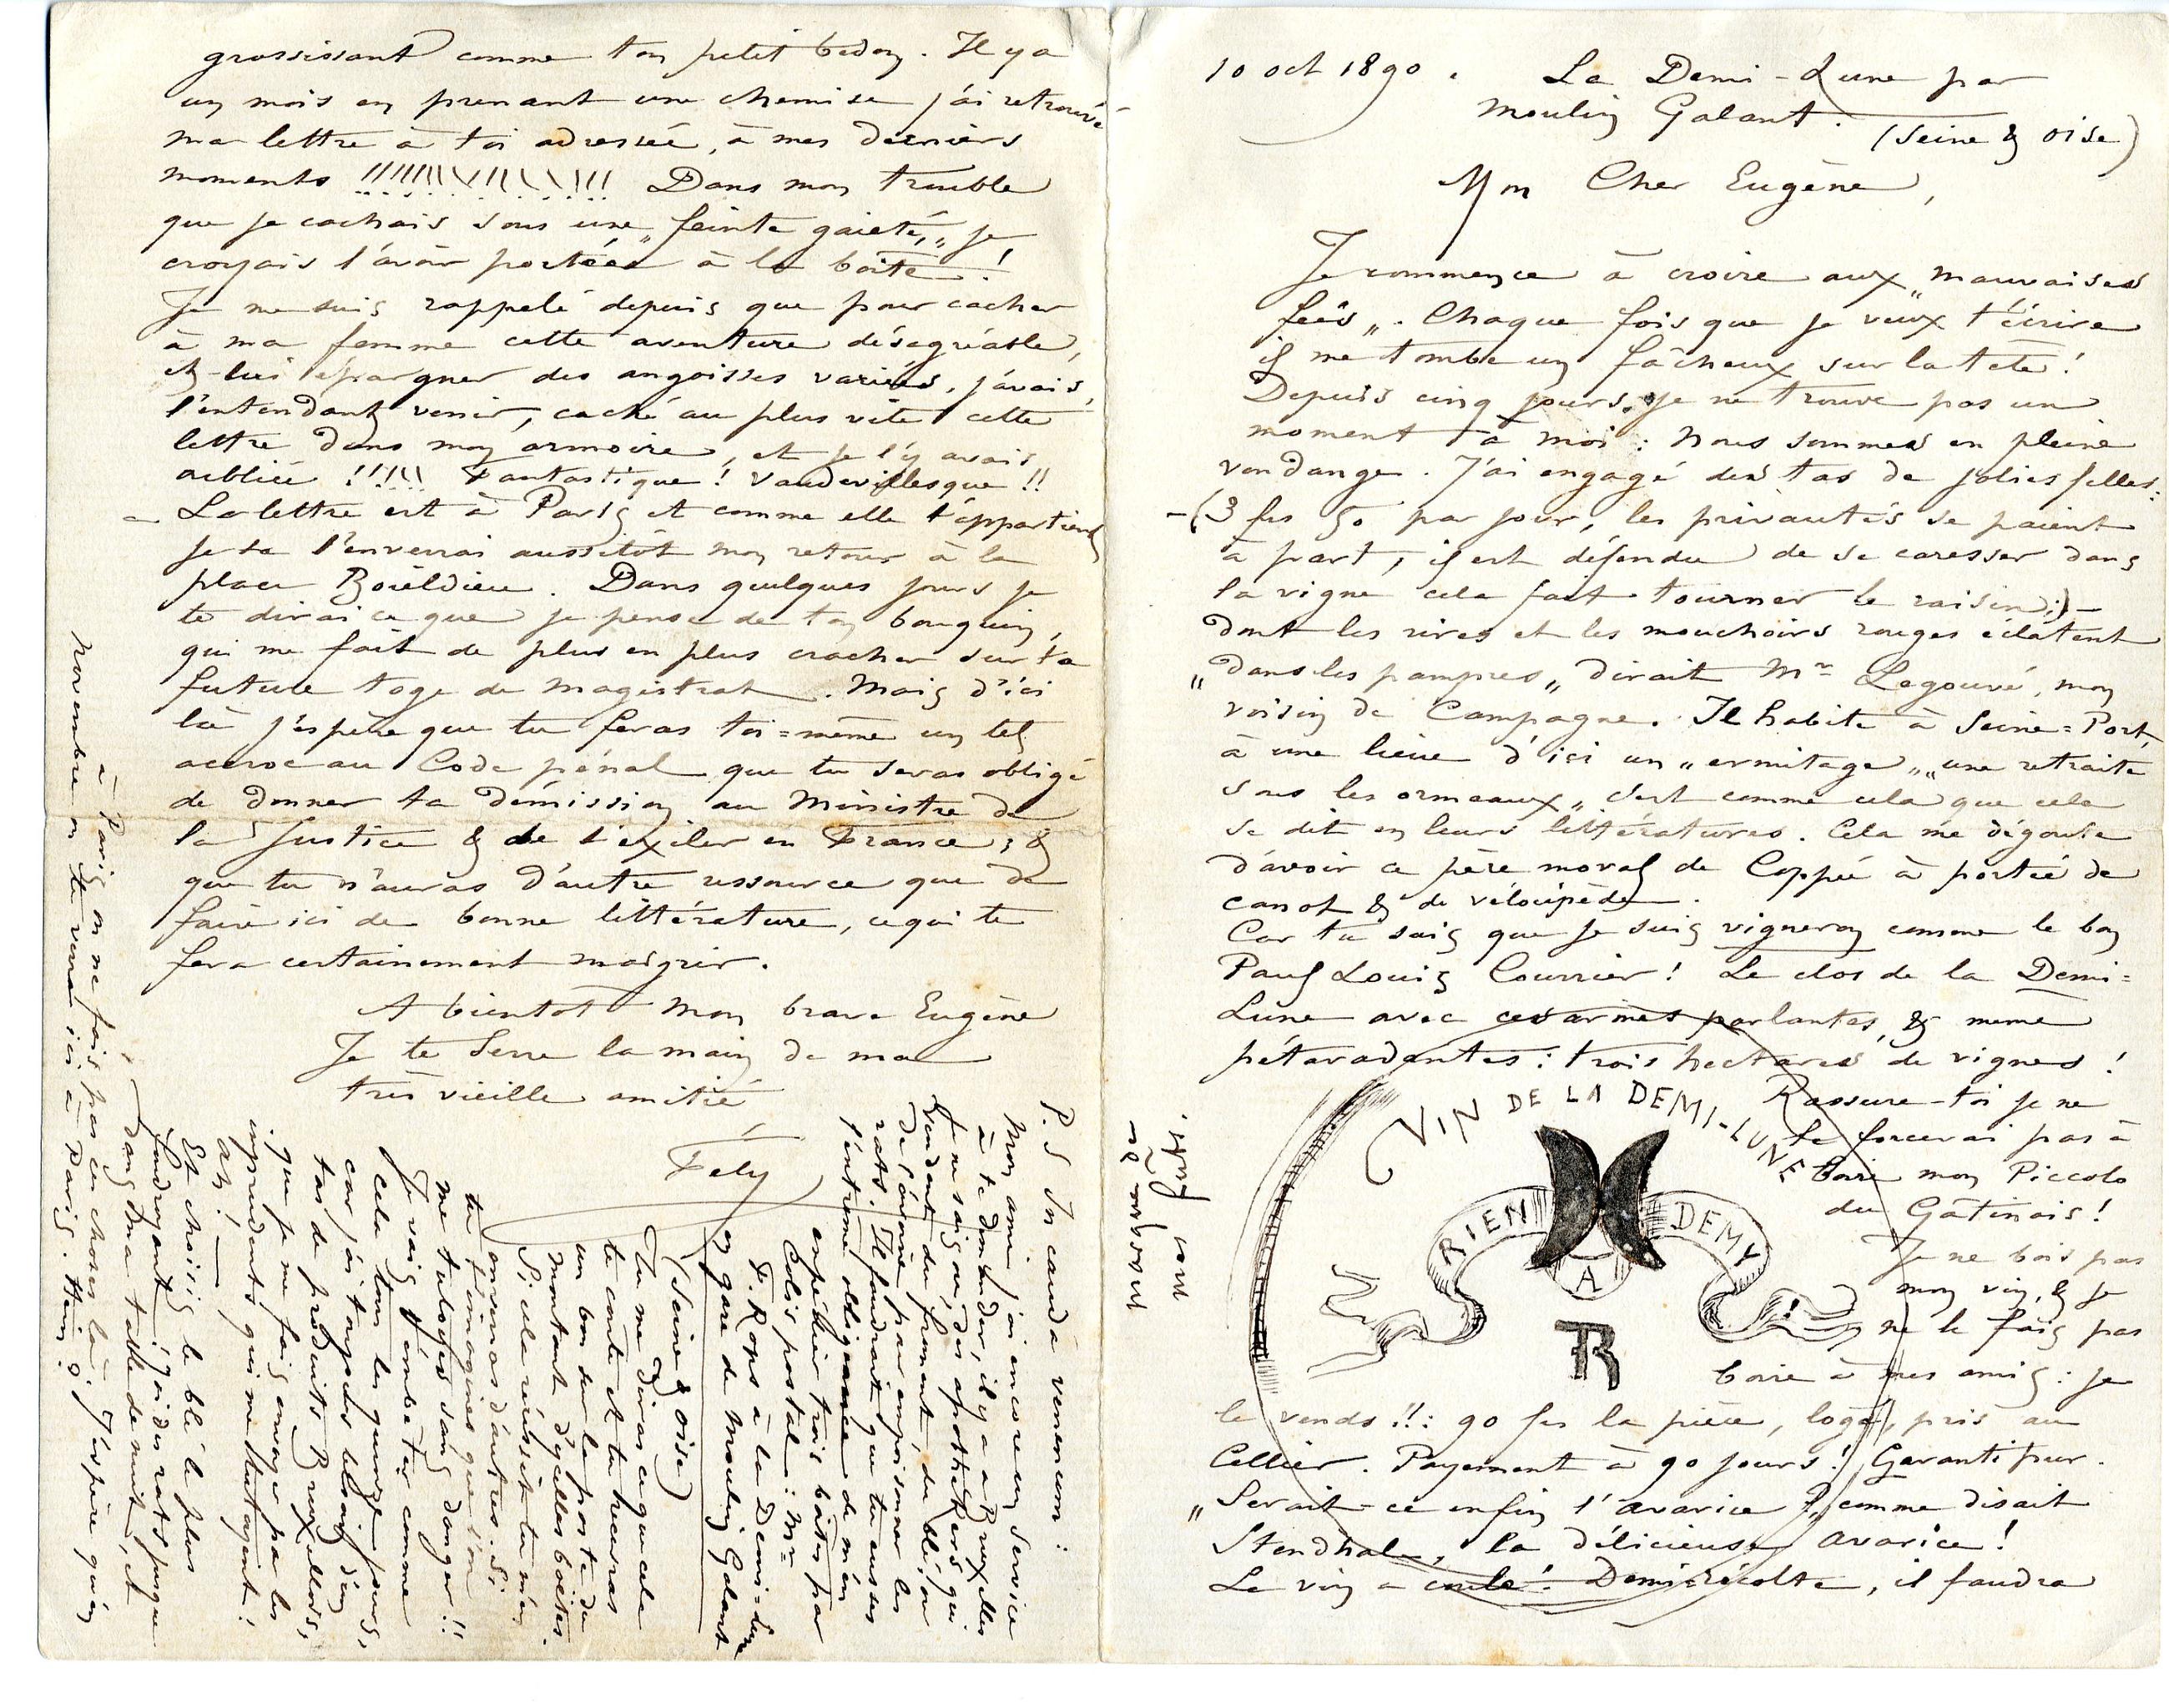 10 oct 1890. La Demi-Lune par
Moulin Galant. (Seine & Oise)
Mon Cher Eugène,
Je commence à croire aux „mauvaises
fées„. Chaque fois que je veux t'écrire
il me tombe un fâcheux sur la tête!
Depuis cinq jours, je ne trouve pas un
moment à moi: nous sommes en pleine
vendange. J'ai engagé des tas de jolies filles:
-(3 frs 50 par jour, les privautés se paient
à part, il est défendu de se caresser dans
la vigne cela fait tourner le raisin;)-
dont les rires et les mouchoirs rouges éclatent
„dans les pampres„ dirait Mr Legouvé, mon
voisin de Campagne. Il habite à Seine=Port,
à une lieue d'ici un „ermitage„ „une retraite
sous les ormeaux„ c'est comme cela que cela
se dit en leurs littératures. Cela me dégoute
d'avoir ce père moral de Coppée à portée de
canot & de vélocipède.
Car tu sais que je suis vigneron comme le bon
Paul Louis Courrier! Le clos de la Demi=
Lune avec ces armes parlantes, & même
pétaradantes: trois hectares de vignes!
VIN DE LA DEMI-LUNE
RIEN A DEMY
FR
Rassure-toi je ne
te forcerai pas à
boire mon Piccolo
du Gâtinais!
Je ne bois pas
mon vin, & je
ne le fais pas
boire à mes amis: je
le vends!!: 90 frs la pièce, logé, pris au
Cellier. Payement à 90 jours! Garanti pur.
„Serait-ce enfin l'avarice?„ comme disait
Stendhale, la délicieuse avarice!
Le vin a coulé! Demi récolte, il faudra
grossissant comme ton petit bedon. Il y a
un mois en prenant une chemise j'ai retrouvé
ma lettre à toi adressée, à mes derniers
moments !!!!!!!!!!!!!!! Dans mon trouble
que je cachais sous une „feinte gaieté,„ je
croyais l'avoir portée à la boîte!
Je me suis rappelé depuis que pour cacher
à ma femme cette aventure désagréable,
et lui épargner des angoisses variées, j'avais,
l'entendant venir, caché au plus vite cette
lettre dans mon armoire, et je l'y avais
oubliée !!!!! Fantastique! Vaudevillesque!!
- La lettre est à Paris et comme elle t'appartient
je te l'enverrai aussitôt mon retour à la
place Boïeldieu. Dans quelques jours je
te dirai ce que je pense de ton bouquin,
qui me fait de plus en plus cracher sur ta
future toge de magistrat. Mais d'ici
là j'espère que tu feras toi=même un tel
accroc au Code pénal que tu seras obligé
de donner ta démission au Ministre de
la Justice & de t'exiler en France; &
que tu n'auras d'autre ressource que de
faire ici de bonne littérature, ce qui te
fera certainement maigrir.
A bientôt mon brave Eugène
Je te serre la main de ma
très vieille amitié
Fély
P.S In cauda venenum:
Mon ami j'ai encore un service
à te demander, il y a à Bruxelles
je ne sais où, des apothikers qui
vendent du froment, du blé, ou
de l'avoine, pour empoisonner les
rats. Il faudrait que tu eusses
l'extrême obligeance de m'en
expédier trois boîtes par
Colis postal: Mr
F. Rops à la Demi=Lune
en gare de Moulin Galant
(Seine & Oise)
Tu me diras ce que cela
te coûte et tu recevras
un bon sur la poste du
montant d'ycelles boîtes.
Si cela réussit tu m'en
enverras d'autres. Si
tu t'imagines que l'on
me tuloyes sans danger!!
Je vais t'embêter comme
cela tous les quinze jours,
car j'ai toujours besoin d'un
tas de produits Bruxellois,
que je me fais envoyer par les
imprudents qui me tutoyent!
Ah! —
Et choisis le blé le plus
foudroyant! j'ai des rats jusque
dans ma table de nuit, et
à Paris on ne fait pas ces choses là. J'espère qu'en
novembre on te verra ici à Paris. Hein?